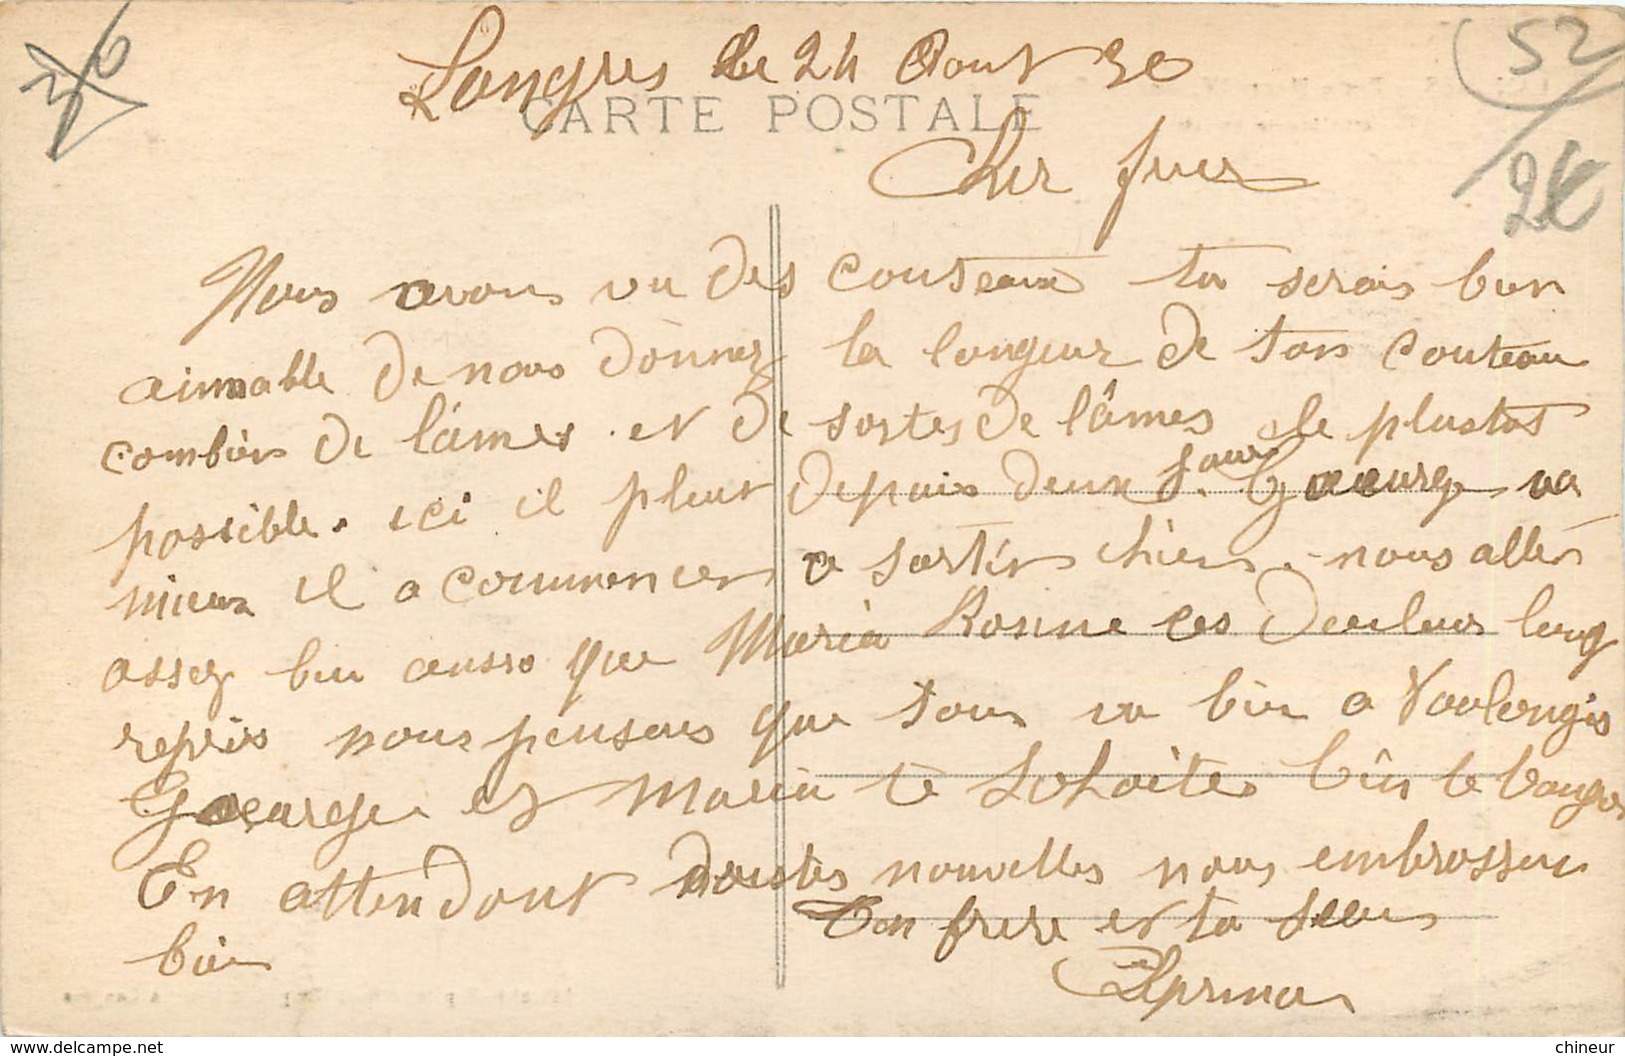 Langres le 24 Aout 30
52
CARTE POSTALE
2€
Cher frere
Nous avons vu des couteaux tu serais bien
aimable de nous donner la longeur de ton couteau
combien de lâmes et de sortes de lâmes le plustot
possible. ici il pleut depuis deux jour Goearge va
mieux il a commencer a sortir hier. nous allen
assez bien ausso que Maria Ronne ces douleur long
repris nous pensons que tous va bien a Voulengis
Goearge et Maria te sohaites bien le bongour
En attendont nouvelles nous embrossere
bien
Ton frere et ta seour